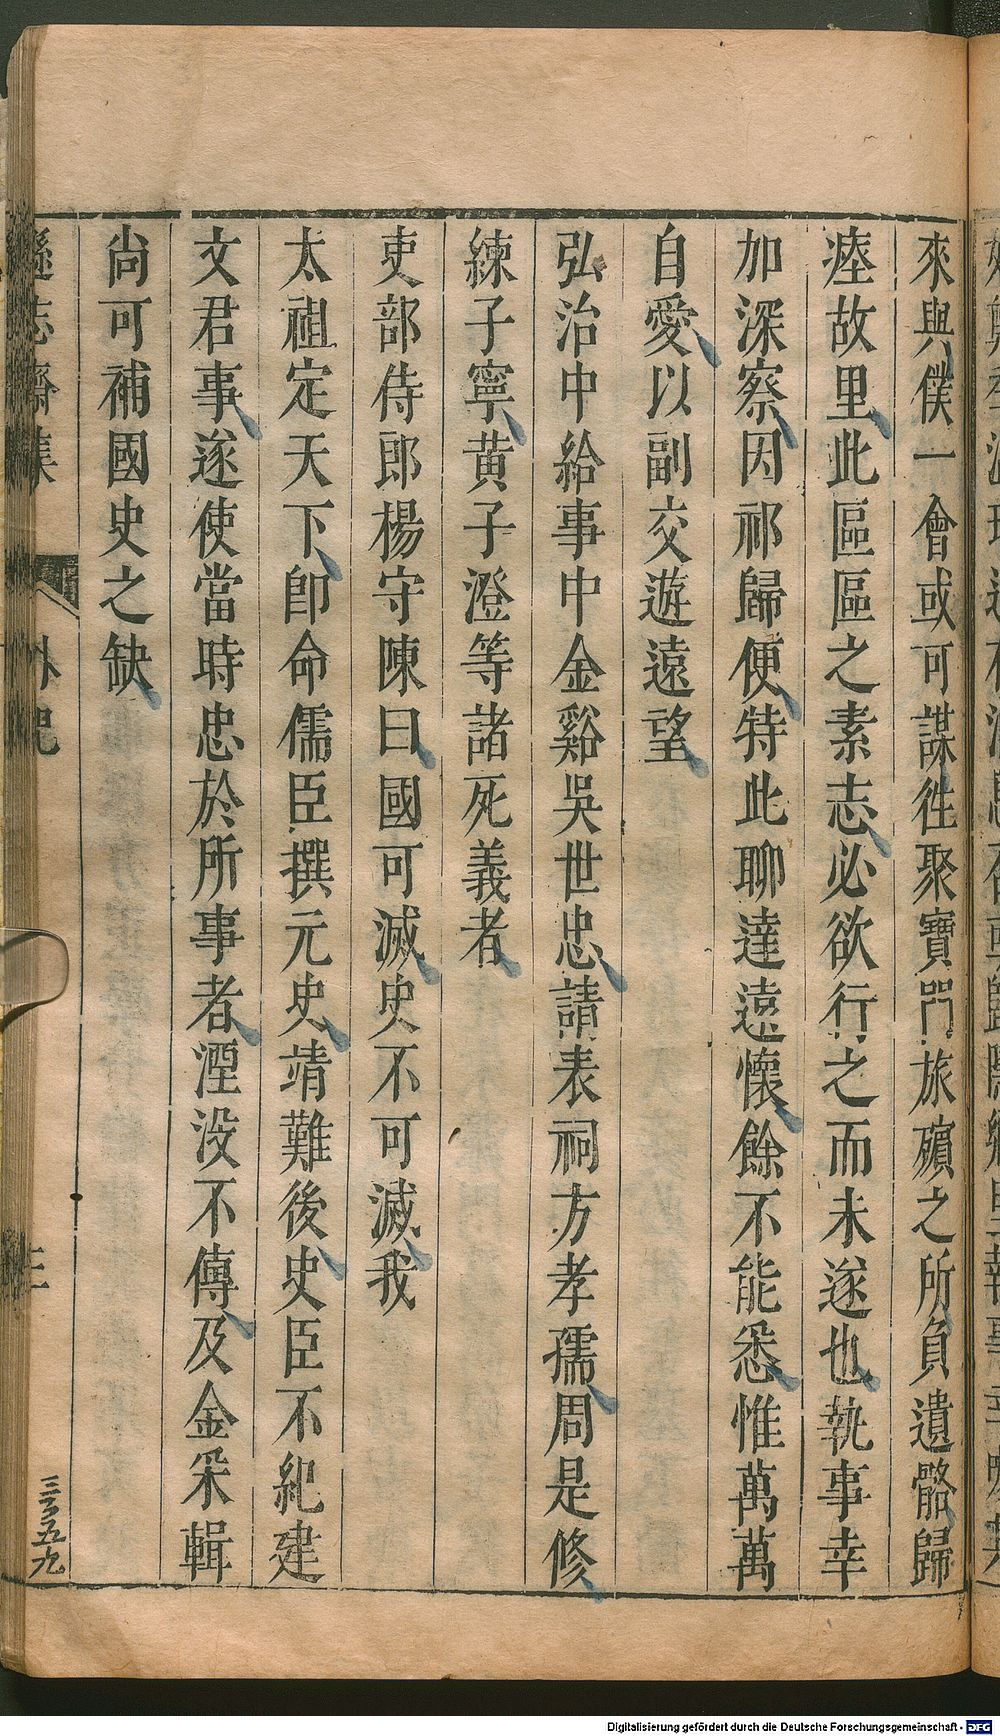 來與僕一會或可謀徃聚寶門旅殯之所負遺骼歸
瘞故里此區區之素志必欲行之而未遂也執事幸
加深察因祁歸便特此聊達遠懷餘不能悉惟萬萬
自愛以副交遊遠望
弘治中給事中金谿吳世忠請表祠方孝孺周是修
練子寧黄子澄等諸死義者
吏部侍郎楊守陳曰國可滅史不可滅我
太祖定天下卽命儒臣撰元史靖難後史臣不紀建
文君事遂使當時忠於所事者湮没不傳及金釆輯
尚可補國史之缺
遜志齋集 外紀 三
三百五九
Digitalisierung gefördert durch die Deutsche Forschungsgemeinschaft - DFG